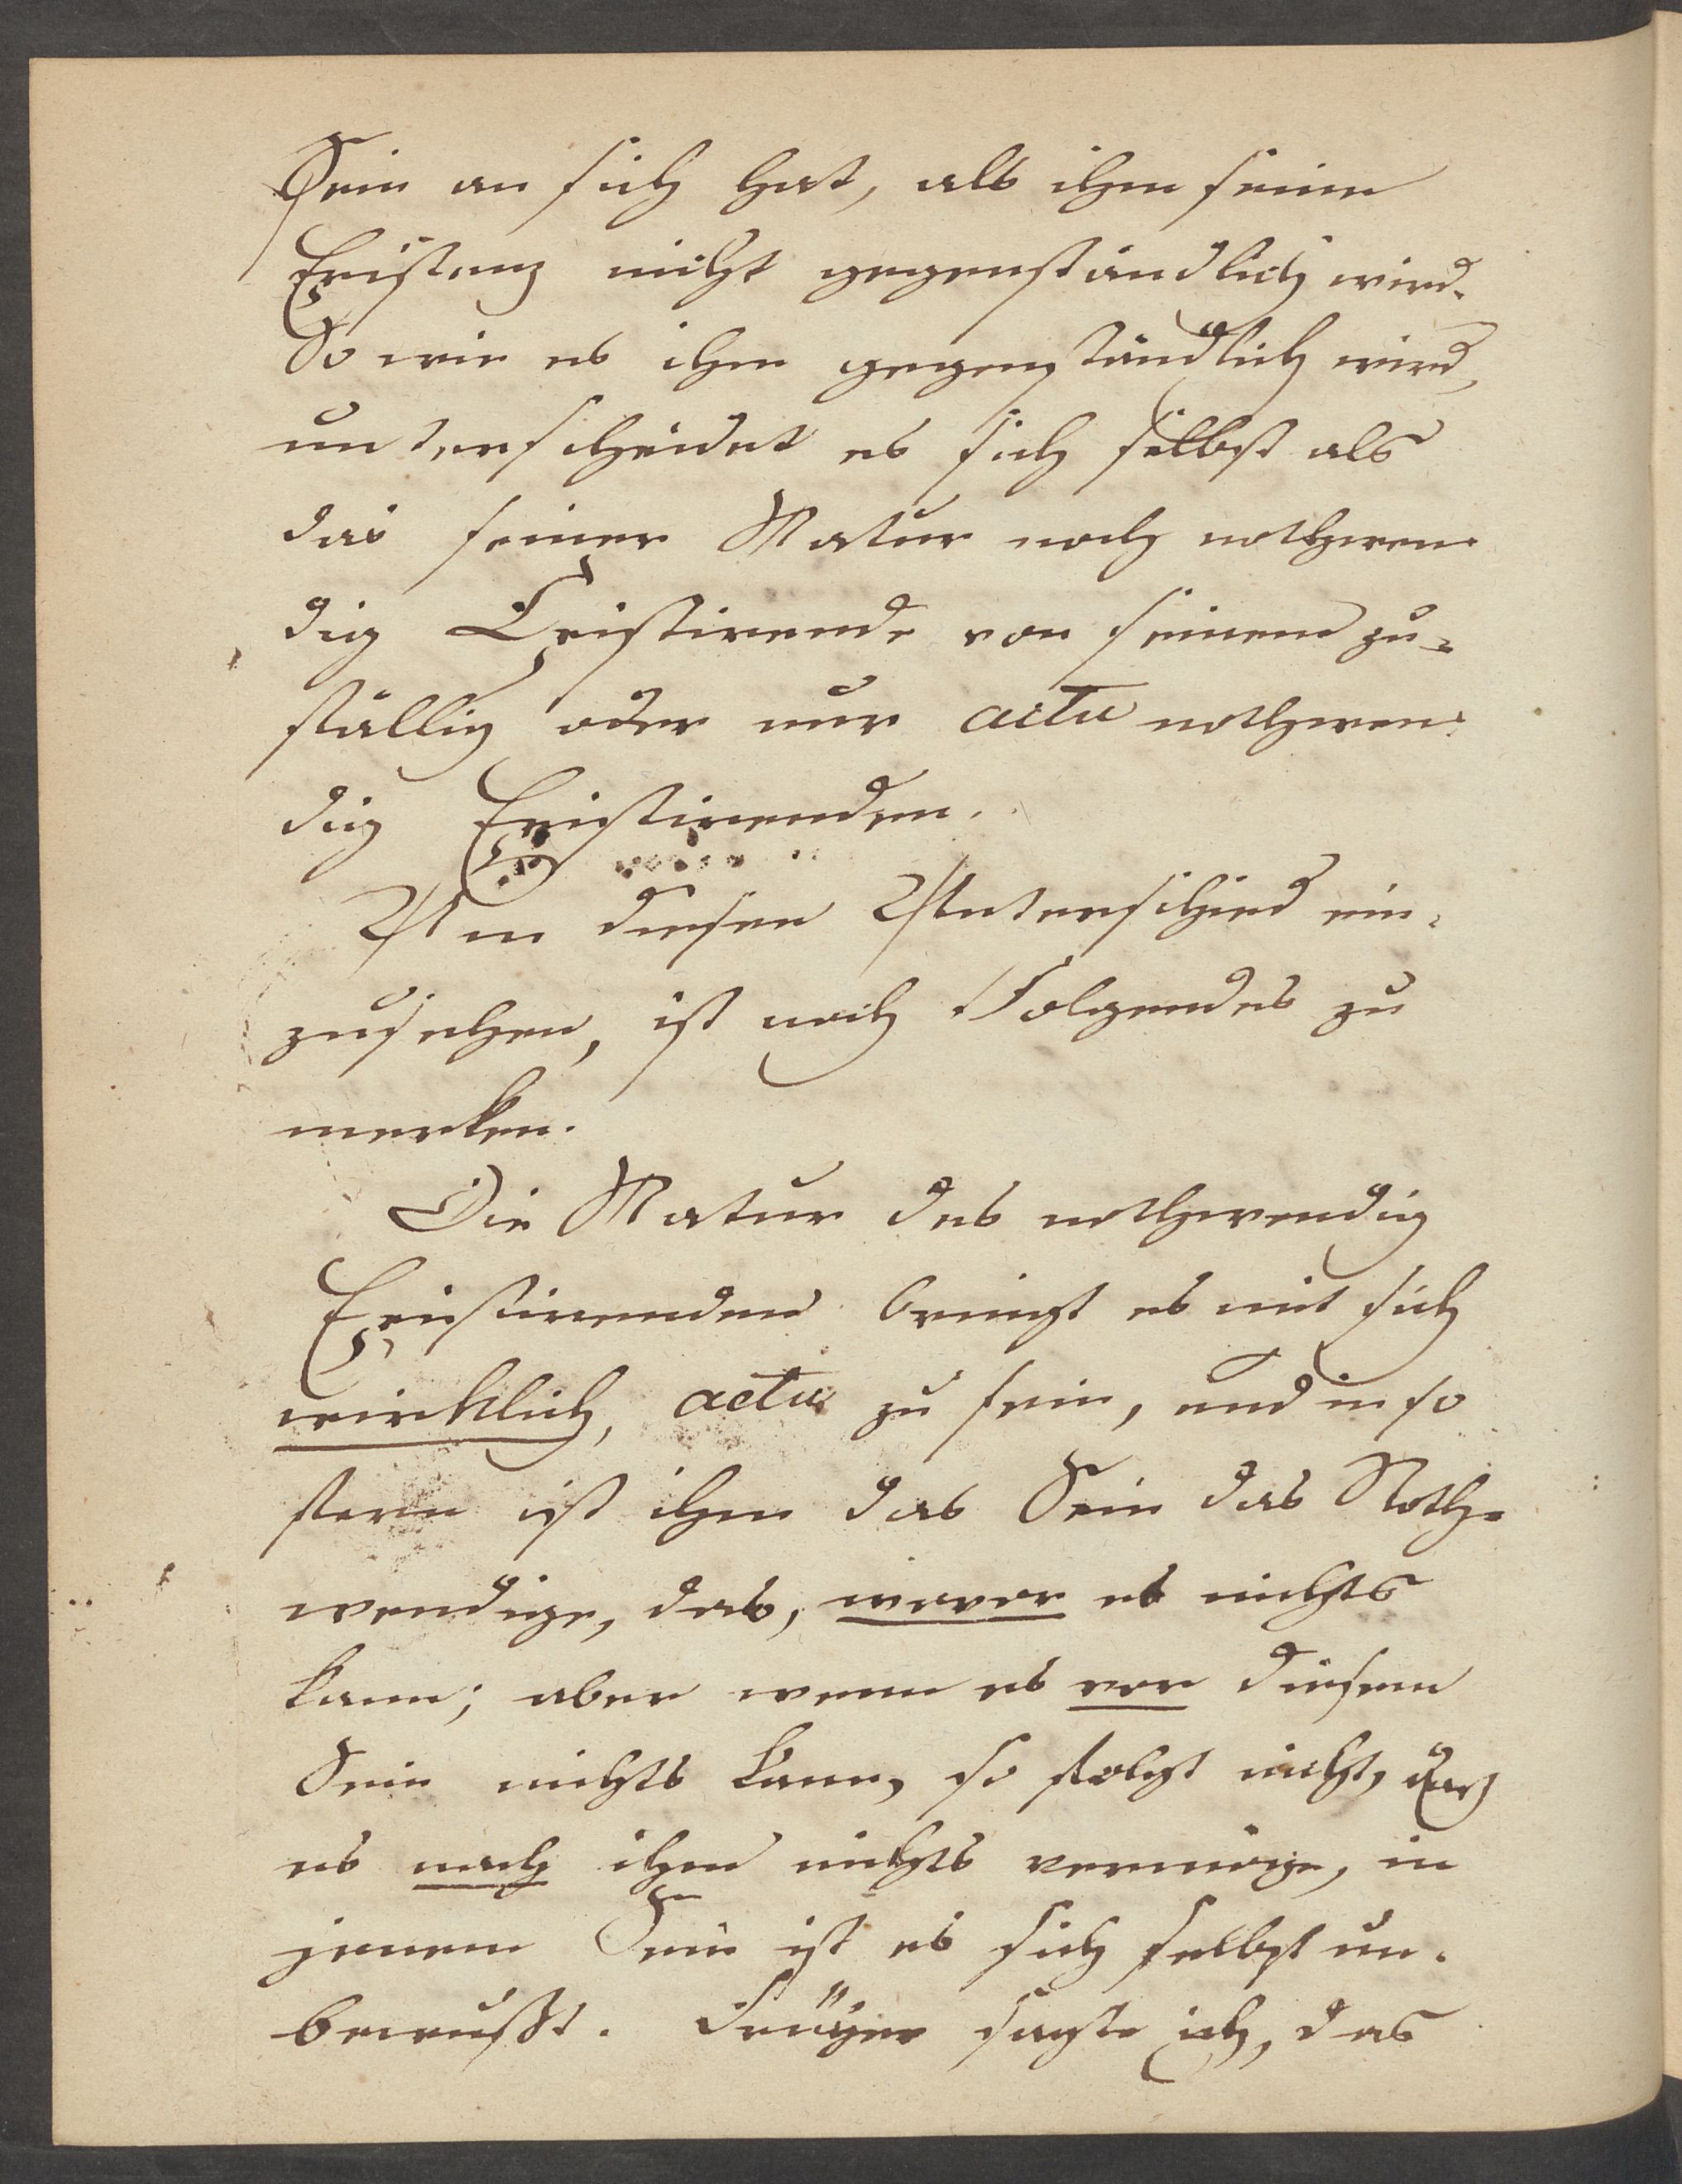 Sein an sich hat, als ihm seine
Existenz nicht gegenständlich wird.
So wie es ihm gegenständlich wird,
unterscheidet es sich selbst als
das seiner Natur nach nothwen-
dig Existirende von seinem zu-
fällig oder nur actu nothwen-
dig Existirenden.
Um diesen Unterschied ein-
zusehen, ist noch Folgendes zu
merken.
Die Natur des nothwendig
Existirenden bringt es mit sich
wirklich, actu zu sein, und in so
fern ist ihm das Sein das Noth-
wendige, das, wovor es nichts
kann; aber wenn es vor diesem
Sein nichts kann, so folgt nicht, daß
es nach ihm nichts vermöge, in
jenem Sein ist es sich selbst un-
bewußt. Früher sagte ich, das